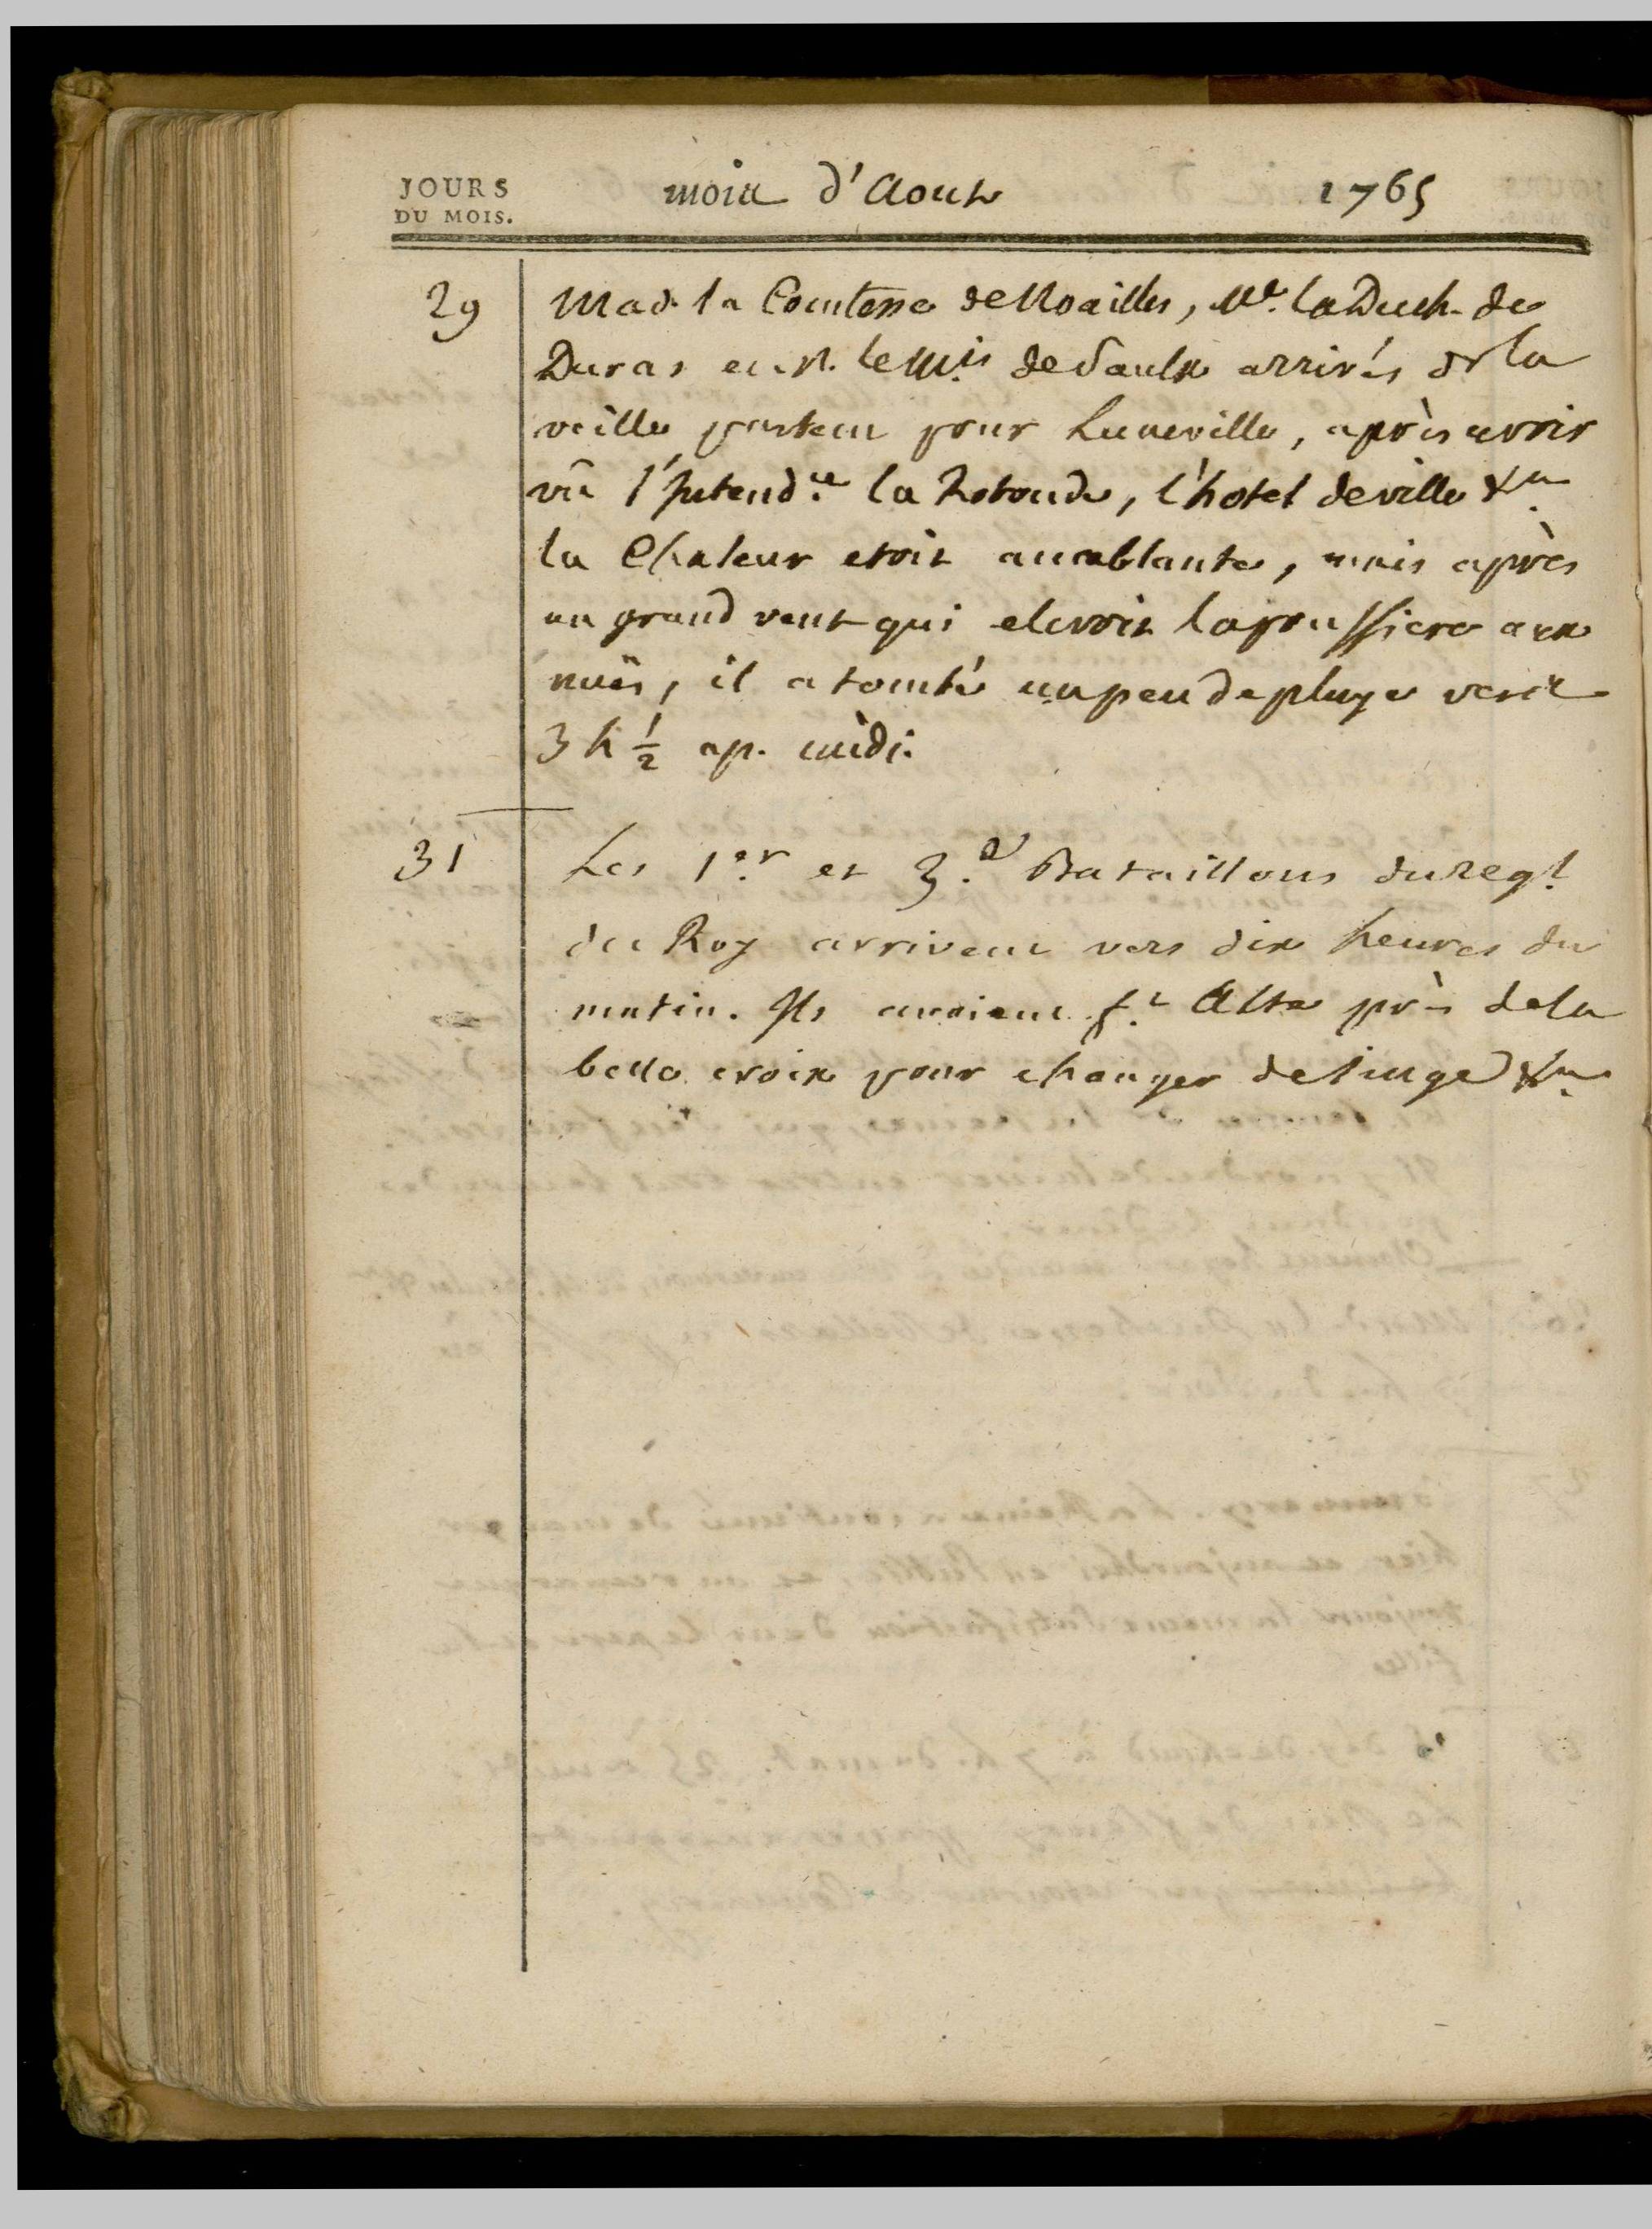 JOURS
DU MOIS.
mois d'Aout 1765
29 Mad. la Comtesse de Noailles, Me. la Duch. de
Duras et M. le Mis. de Saulx arrivés de la
veille partent pour Luneville, après avoir
vû l'Intendce. la Rotonde, l'hotel de ville &a.
la Chaleur etoit accablante, mais après
un grand vent qui elevoit la poussiere aux
nuës, il a tombé un peu de pluye vers
3 h ½ ap. midi.
31 Les 1er. et 3.e Bataillons du Regt.
du Roy arrivent vers dix heures du
matin. Ils avoient ft. Alte près de la
belle croix pour changer de linge &a.